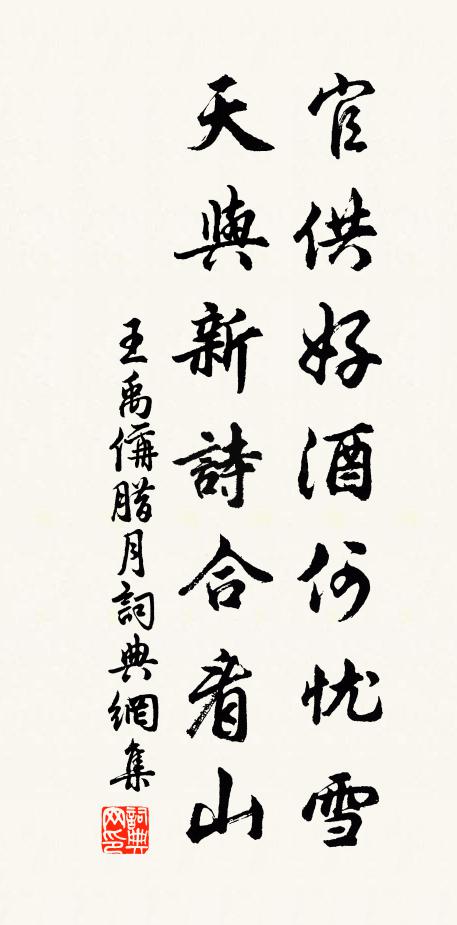 官供好酒何忧雪
天與新詩合看山
王禹偁腊月詞典網集
詞典网印